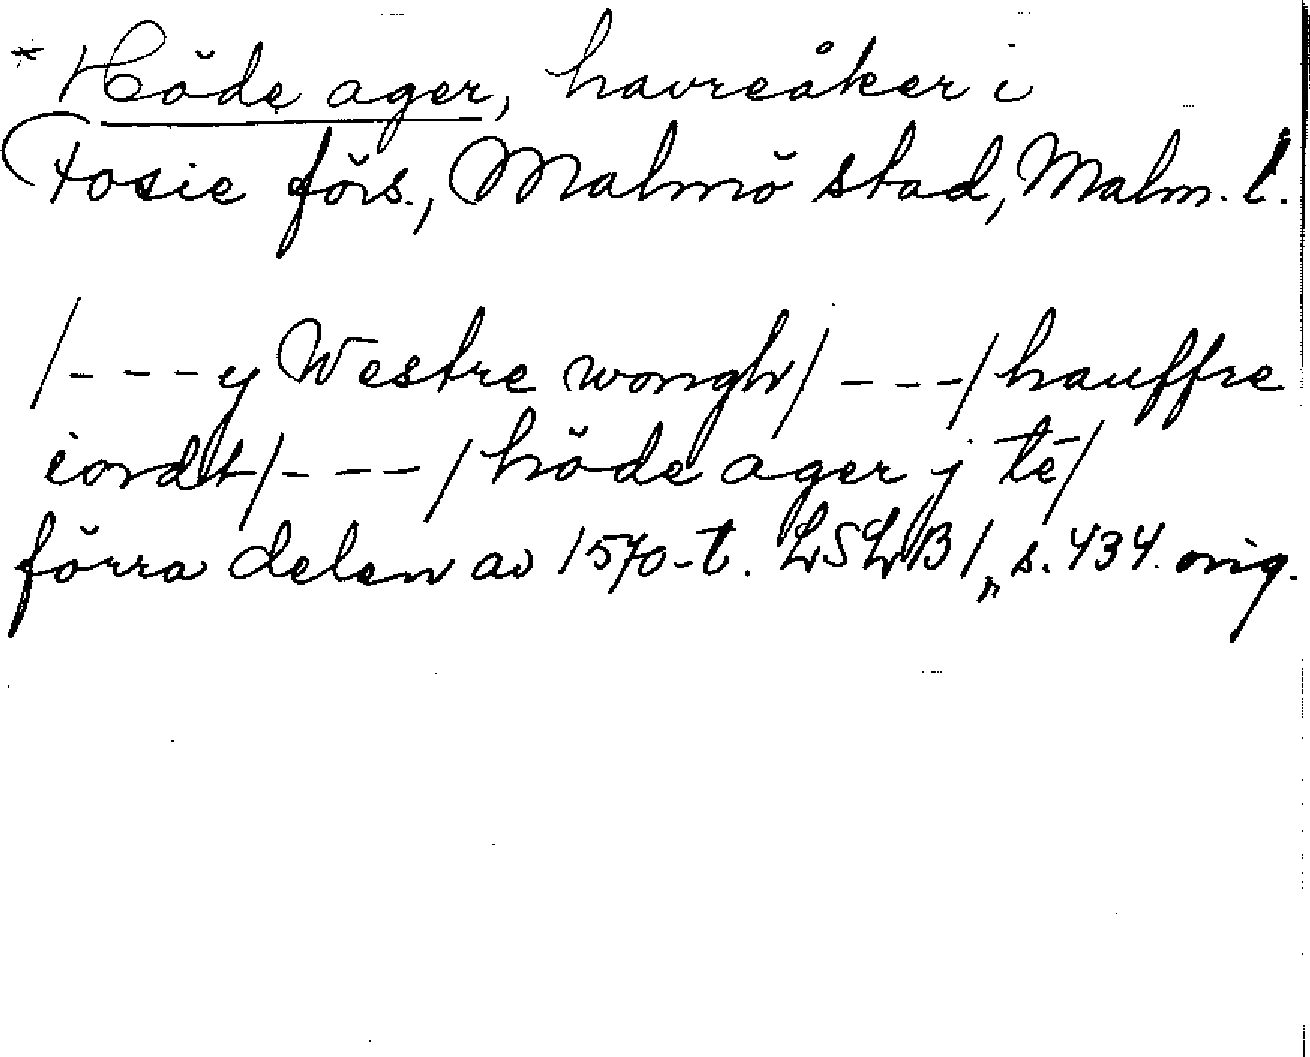 * Höde ager, havreåker i
Fosie förs., Malmö stad, Malm. l.
/---y Westre wongh/---/hauffre
iordt/---/höde ager j tē/
förra delen av 1570-t. LSLB 1, s. 434. orig.